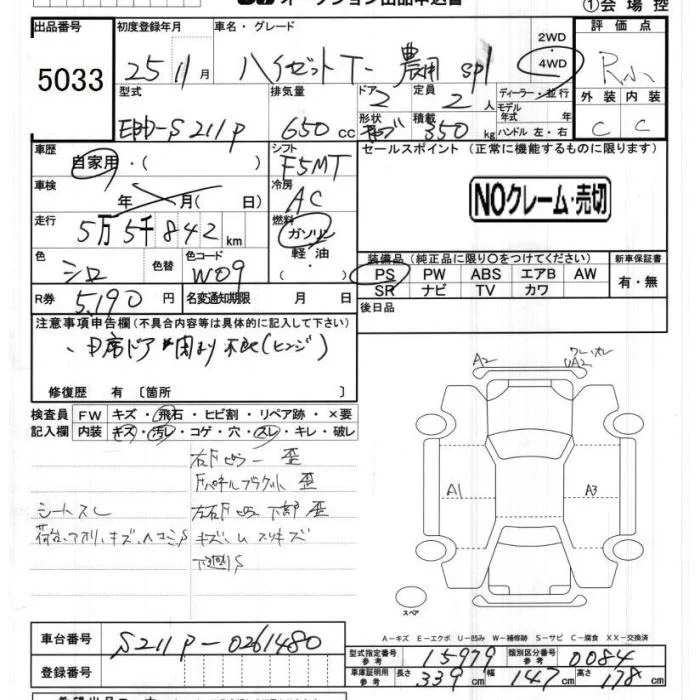 オークション出品申込書 ①会場控
出品番号 初度登録年月 車名・グレード 評価点
5033 25 11月 ハイゼットT- 農用 spl 2WD ・ 4WD R小
型式 排気量 ドア 定員 ディーラー・並行 外装 内装
EBD-S211P 650cc 2 2人 モデル年式 年式 C C
形状 積載 ハンドル 左・右
350kg
車歴 シフト セールスポイント (正常に機能するものに限ります)
自家用・( ) F5MT
車検 冷房
年 月( 日) AC NOクレーム・売切
走行 燃料
5万5千842km ガソリン・軽油
色 色替 色コード ( )
シロ W09
装備品(純正品に限り○をつけてください) 新車保証書
PS PW ABS エアB AW 有・無
SR ナビ TV カワ
R券 5,190円 名変通知期限 月 日 後日品
注意事項申告欄(不具合内容等は具体的に記入して下さい)
修復歴 有 〔箇所 〕
検査員 FW キズ・飛石・ヒビ割・リペア跡・×要
記入欄 内装 キズ・汚レ・コゲ・穴・スレ・キレ・破レ
A2 A2
A1 A3
右Fピラー 歪
歪
シートスレ 左右Fピラー下部 歪
スペア
A-キズ E-エクボ U-凹み W-補修跡 S-サビ C-腐食 XX-交換済
車台番号 S211P-0261480
型式指定番号 参考 15979 類別区分番号 参考 0084
登録番号 車庫証明用 参考 長さ 339cm 幅 147cm 高さ 178cm